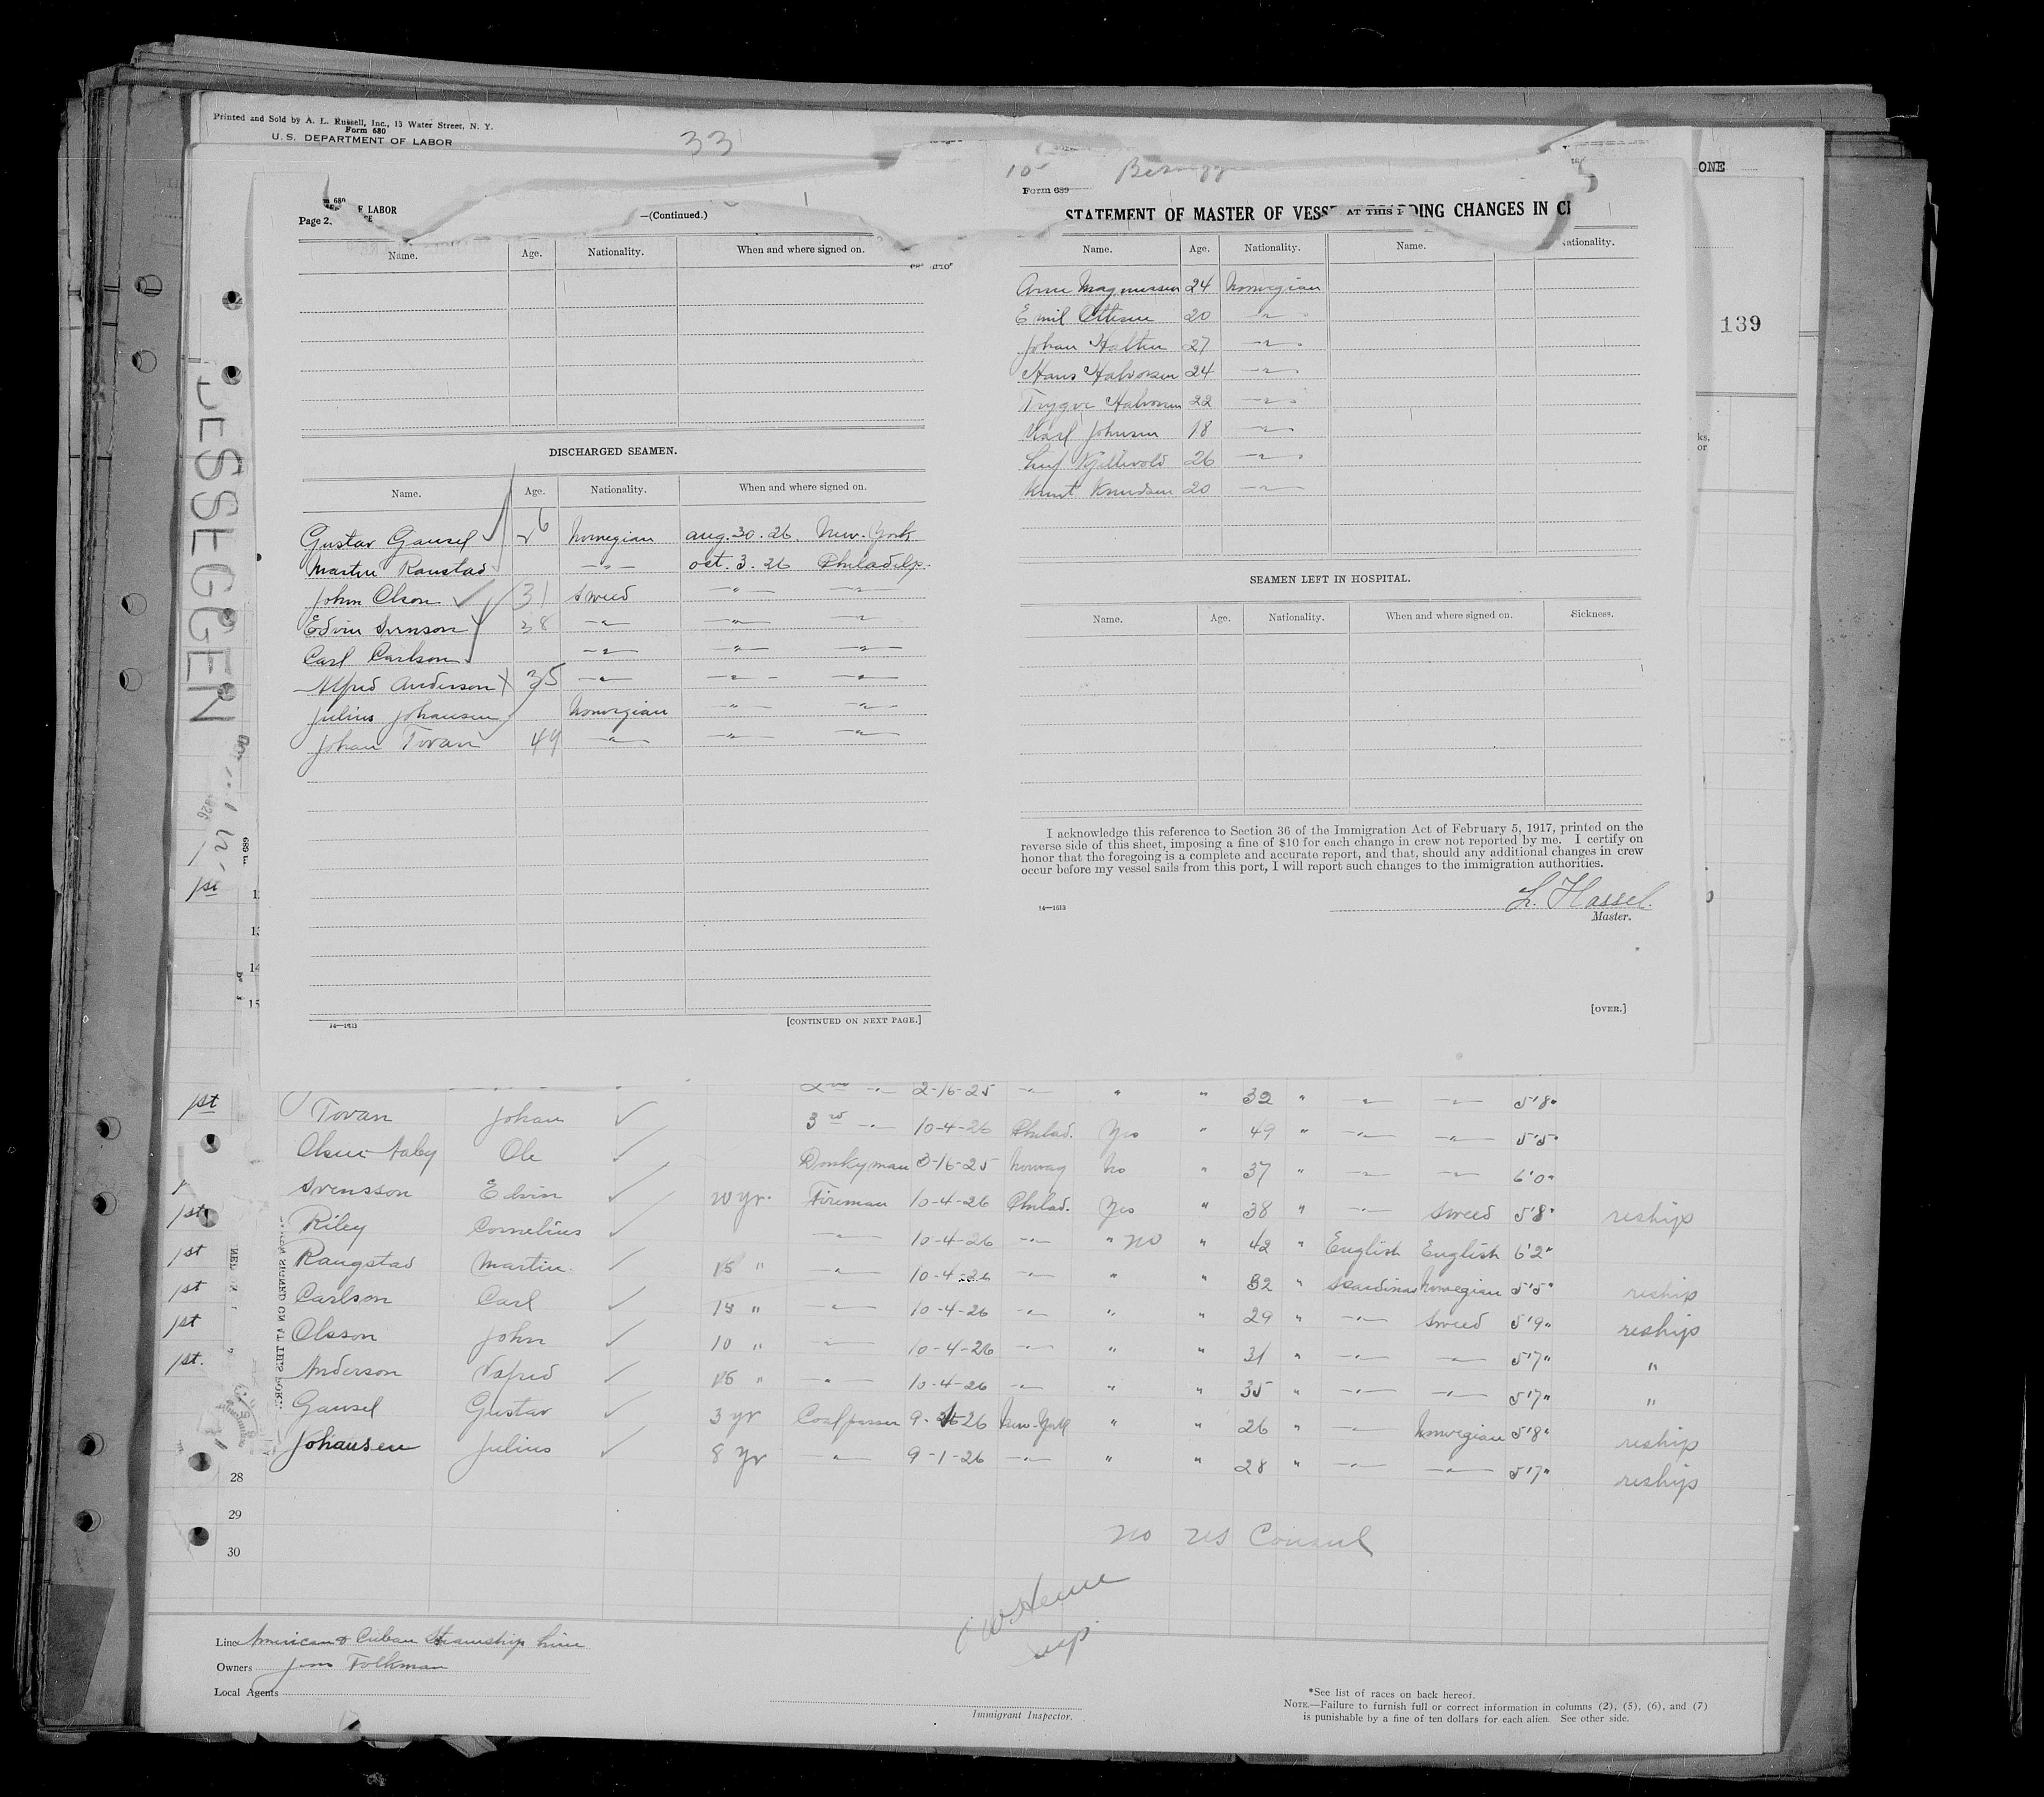 Printed and Sold by A. L. Russell, Inc., 13 Water Street, N. Y.
Form 680
U. S. DEPARTMENT OF LABOR
33
ONE
139
10
Form 689
LABOR
Page 2.
—(Continued.)
Name. Age. Nationality. When and where signed on.
DISCHARGED SEAMEN.
Name. Age. Nationality. When and where signed on.
Gustav Gausel 26 Norwegian aug. 30. 26. New-York
Martin Ranstad —"— oct. 3. 26 Philadelp.
John Olson 31 Sweed —"— —"—
Edvin Svenson 38 —"— —"— —"—
Carl Carlson —"— —"— —"—
Alfred Anderson 35 —"— —"— —"—
Julius Johansen Norwegian —"— —"—
Johan Tovan 49 —"— —"— —"—
14—1613
[CONTINUED ON NEXT PAGE.]
STATEMENT OF MASTER OF VESS AT THIS P DING CHANGES IN C
Name. Age. Nationality. Name. ationality.
Arne Magnussen 24 Norwegian
Emil Ottesen 20 —"—
Johan 27 —"—
Hans Halvorsen 24 —"—
Trygve Halvorsen 22 —"—
Karl Johnsen 18 —"—
26 —"—
Knut Knudsen 20 —"—
SEAMEN LEFT IN HOSPITAL.
Name. Age. Nationality. When and where signed on. Sickness.
I acknowledge this reference to Section 36 of the Immigration Act of February 5, 1917, printed on the
reverse side of this sheet, imposing a fine of $10 for each change in crew not reported by me. I certify on
honor that the foregoing is a complete and accurate report, and that, should any additional changes in crew
occur before my vessel sails from this port, I will report such changes to the immigration authorities.
L. Hassel.
14—1613
Master.
[OVER.]
ESSEGGEN
2nd —"— 2-16-25 —"— " " 32 " —"— —"— 5'8"
1st Tovan Johan 3rd —"— 10-4-26 Philad. Yes " 49 " —"— —"— 5'5"
Olsen Aaby Ole Donkyman 3-16-25 Norway No " 37 " —"— —"— 6'0"
Svensson Edvin 20 yr. Fireman 10-4-26 Philad. Yes " 38 " —"— Sweed 5'8" reship
1st Riley Cornelius —"— 10-4-26 —"— " no " 42 " English English 6'2"
1st Rangstad Martin 15 " —"— 10-4-26 —"— " " 32 " Scandinav Norwegian 5'5" reship
1st Carlson Carl 14 " —"— 10-4-26 —"— " " 29 " —"— Sweed 5'9" reship
1st Olsson John 10 " —"— 10-4-26 —"— " " 31 " —"— —"— 5'7" "
1st. Anderson Alfred 15 " —"— 10-4-26 —"— " " 35 " —"— —"— 5'7" "
Gausel Gustav 3 yr Coalpasser 9-1-26 New-York " " 26 " —"— Norwegian 5'8" reship
Johansen Julius 8 yr —"— 9-1-26 —"— " " 28 " —"— —"— 5'7" reship
28
29
30
no US Consul
Line American & Cuban Steamship Line
Owners Jens Folkman
Local Agents
Immigrant Inspector.
*See list of races on back hereof.
NOTE.—Failure to furnish full or correct information in columns (2), (5), (6), and (7)
is punishable by a fine of ten dollars for each alien. See other side.